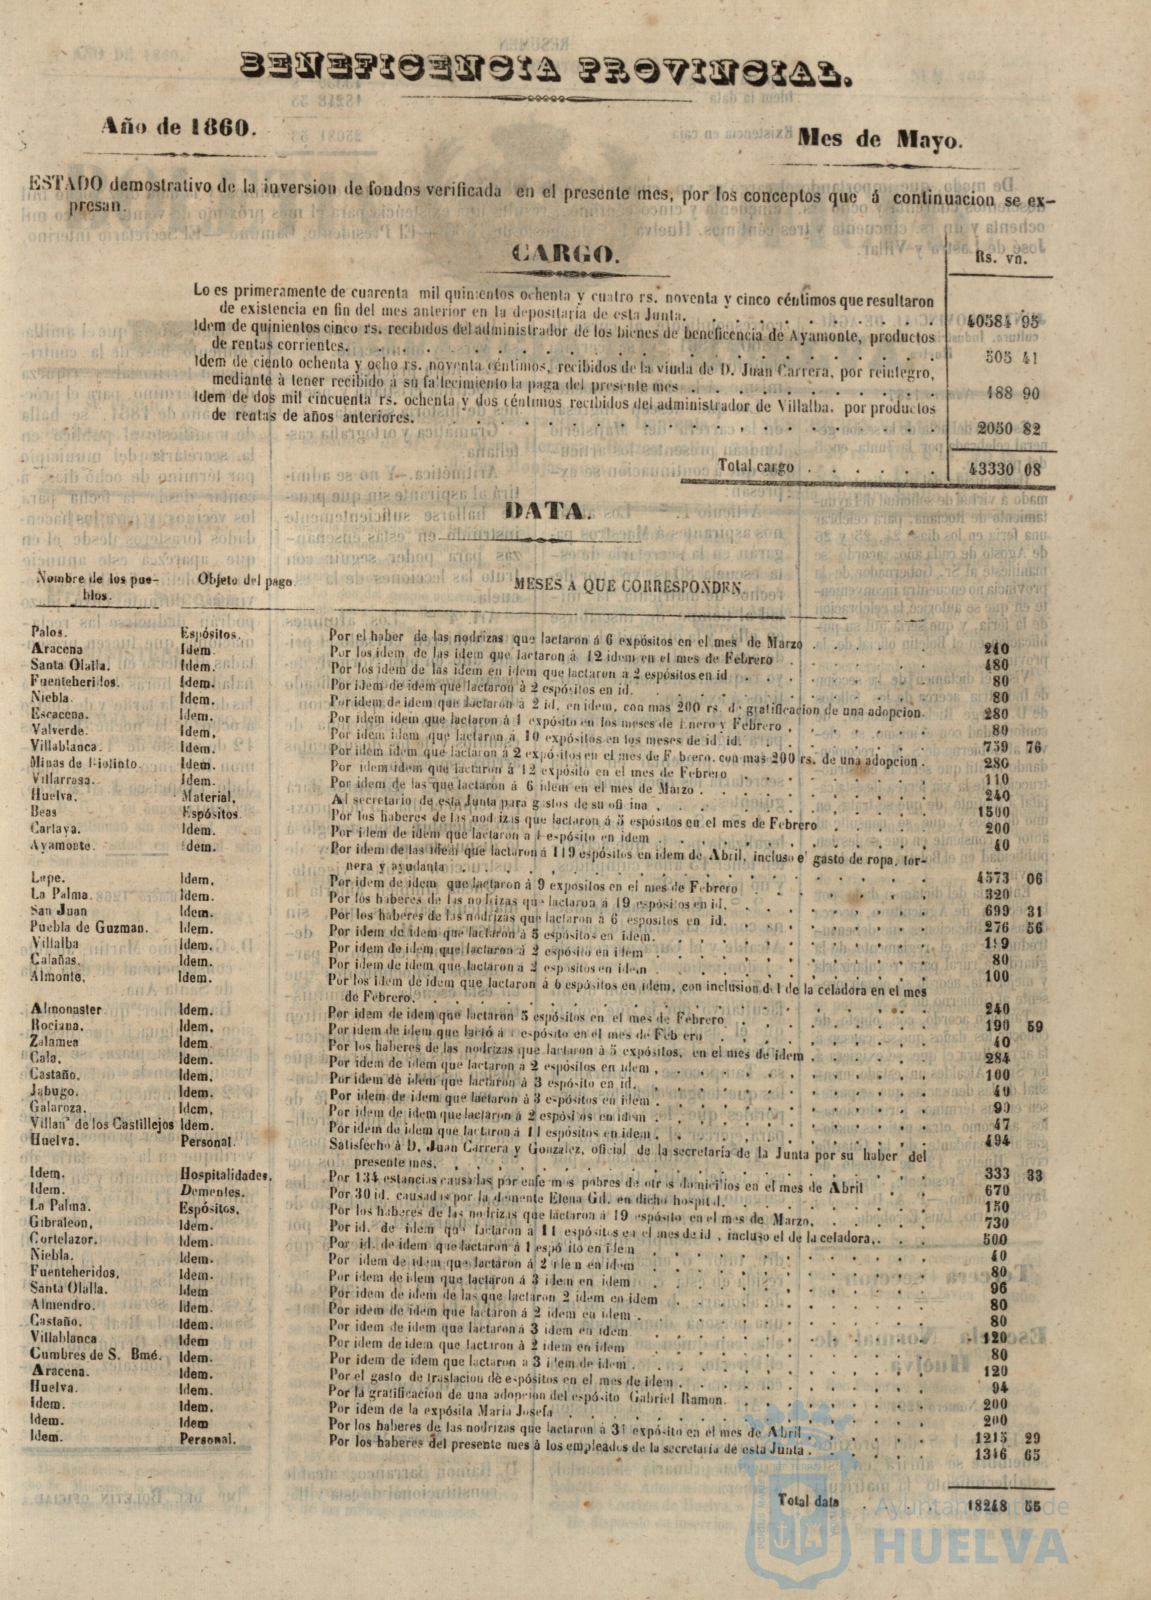 BENEFICENCIA PROVINCIAL.
Año de 1860.
Mes de Mayo.
ESTADO demostrativo de la inversion de fondos verificada en el presente mes, por los conceptos que á continuacion se ex-
presan.
CARGO.
Rs. vn.
Lo es primeramente de cuarenta mil quinientos ochenta y cuatro rs. noventa y cinco céntimos que resultaron
de existencia en fin del mes anterior en la depositaría de esta Junta. 40584 95
Idem de quinientos cinco rs. recibidos del administrador de los bienes de beneficencia de Ayamonte, productos
de rentas corrientes. 505 41
Idem de ciento ochenta y ocho rs. noventa céntimos, recibidos de la viuda de D. Juan Carrera, por reintegro,
mediante á tener recibido á su fallecimiento la paga del presente mes 188 90
Idem de dos mil cincuenta rs. ochenta y dos céntimos recibidos del administrador de Villalba, por productos
de rentas de años anteriores. 2050 82
Total cargo 43330 08
DATA.
Nombre de los pue-
blos.
Objeto del pago.
MESES A QUE CORRESPONDEN
Palos. Espósitos. Por el haber de las nodrizas que lactaron á 6 expósitos en el mes de Marzo 240
Aracena Idem. Por los idem de las idem que lactaron á 12 idem en el mes de Febrero 480
Santa Olalla. Idem. Por los idem de las idem en idem que lactaron a 2 espósitos en id 80
Fuenteheridos. Idem. Por idem de idem que lactaron à 2 espósitos en id. 80
Niebla. Idem. Por idem de idem que lactaron á 2 id. en idem, con mas 200 rs. de gratificacion de una adopcion. 280
Escacena. Idem. Por idem idem que lactaron á 1 expósito en los meses de Enero y Febrero 80
Valverde. Idem, Por idem idem que lactaron á 10 expósitos en los meses de id id. 759 76
Villablanca. Idem. Por idem idem que lactaron á 2 expósitos en el mes de Febrero, con mas 200 rs. de una adopcion. 280
Minas de Riotinto. Idem. Por idem idem que lactaron á 12 expósito en el mes de Febrero 110
Villarrasa. Idem. Por idem de las que lactaron á 6 idem en el mes de Marzo 240
Huelva. Material. Al secretario de esta Junta para gastos de su oficina 1500
Beas Espósitos. Por los haberes de las nodrizas que lactaron á 5 espósitos en el mes de Febrero 200
Cartaya. Idem. Por idem de idem que lactaron a 1 espósito en idem 40
Ayamonte. Idem. Por idem de las idem que lactaron á 119 espósitos en idem de Abril, incluso el gasto de ropa, tor-
nera y ayudanta 4573 06
Lepe. Idem. Por idem de idem que lactaron á 9 expositos en el mes de Febrero 320
La Palma. Idem. Por los haberes de las nodrizas que lactaron á 19 espósitos en id. 699 31
San Juan Idem. Por los haberes de las nodrizas que lactaron á 6 espositos en id. 276 56
Puebla de Guzman. Idem. Por idem de idem que lactaron á 5 espósitos en idem.
Villalba Idem. Por idem de idem que lactaron á 2 espósito en idem 80
Calañas. Idem. Por idem de idem que lactaron á 2 espósitos en idem 100
Almonte. Idem. Por los idem de idem que lactaron á 6 espósitos en idem, con inclusion del de la celadora en el mes
de Febrero. 240
Almonaster Idem. Por idem de idem que lactaron 5 espósitos en el mes de Febrero 190 59
Rociana. Idem. Por idem de idem que lactó á espósito en el mes de Febrero 40
Zalamea Idem. Por los haberes de las nodrizas que lactaron á 5 expósitos, en el mes de idem 284
Cala. Idem. Por idem de idem que lactaron á 2 espósitos en idem 100
Castaño. Idem. Por idem de idem que lactaron á 3 espósito en id. 40
Jabugo. Idem. Por idem de idem que lactaron á 3 espósitos en idem 90
Galaroza. Idem, Por idem de idem que lactaron á 2 espósitos en idem 47
Villanª de los Castillejos Idem. Por idem de idem que lactaron á 11 espósitos en idem 494
Huelva. Personal. Satisfecho á D. Juan Carrera y Gonzalez, oficial de la secretaría de la Junta por su haber del
presente mes. 333 33
Idem. Hospitalidades. Por 134 estancias causadas por enfermos pobres de otros domicilios en el mes de Abril 670
Idem. Dementes. Por 30 id. causadas por la demente Elena Gd. en dicho hospital. 150
La Palma. Espósitos. Por los haberes de las nodrizas que lactaron á 19 espósito en el mes de Marzo. 730
Gibraleon, Idem. Por id. de idem que lactaron á 11 espósitos en el mes de id, incluso el de la celadora, 500
Cortelazor. Idem. Por id. de idem que lactaron á 1 espósito en idem 40
Niebla. Idem. Por idem de idem que lactaron á 2 idem en idem 80
Fuenteheridos, Idem. Por idem de idem que lactaron á 3 idem en idem 96
Santa Olalla. Idem Por idem de idem de las que lactaron 2 idem en idem 80
Almendro. Idem. Por idem de idem que lactaron á 2 idem en idem 80
Castaño. Idem. Por idem de idem que lactaron á 3 idem en idem 120
Villablanca Idem Por idem de idem que lactaron á 2 idem en idem 80
Cumbres de S. Bmé. Idem. Por idem de idem que lactaron a 3 idem de idem 120
Aracena. Idem. Por el gasto de traslacion de espósitos en el mes de idem 94
Huelva. Idem. Por la gratificacion de una adopcion del espósito Gabriel Ramon. 200
Idem. Idem. Por idem de la expósita María Josefa 200
Idem. Idem Por los haberes de las nodrizas que lactaron á 31 expósito en el mes de Abril 1215 29
Idem. Personal. Por los haberes del presente mes á los empleados de la secretaría de esta Junta 1346 65
Total data 18248 55
Ayuntamiento de
HUELVA